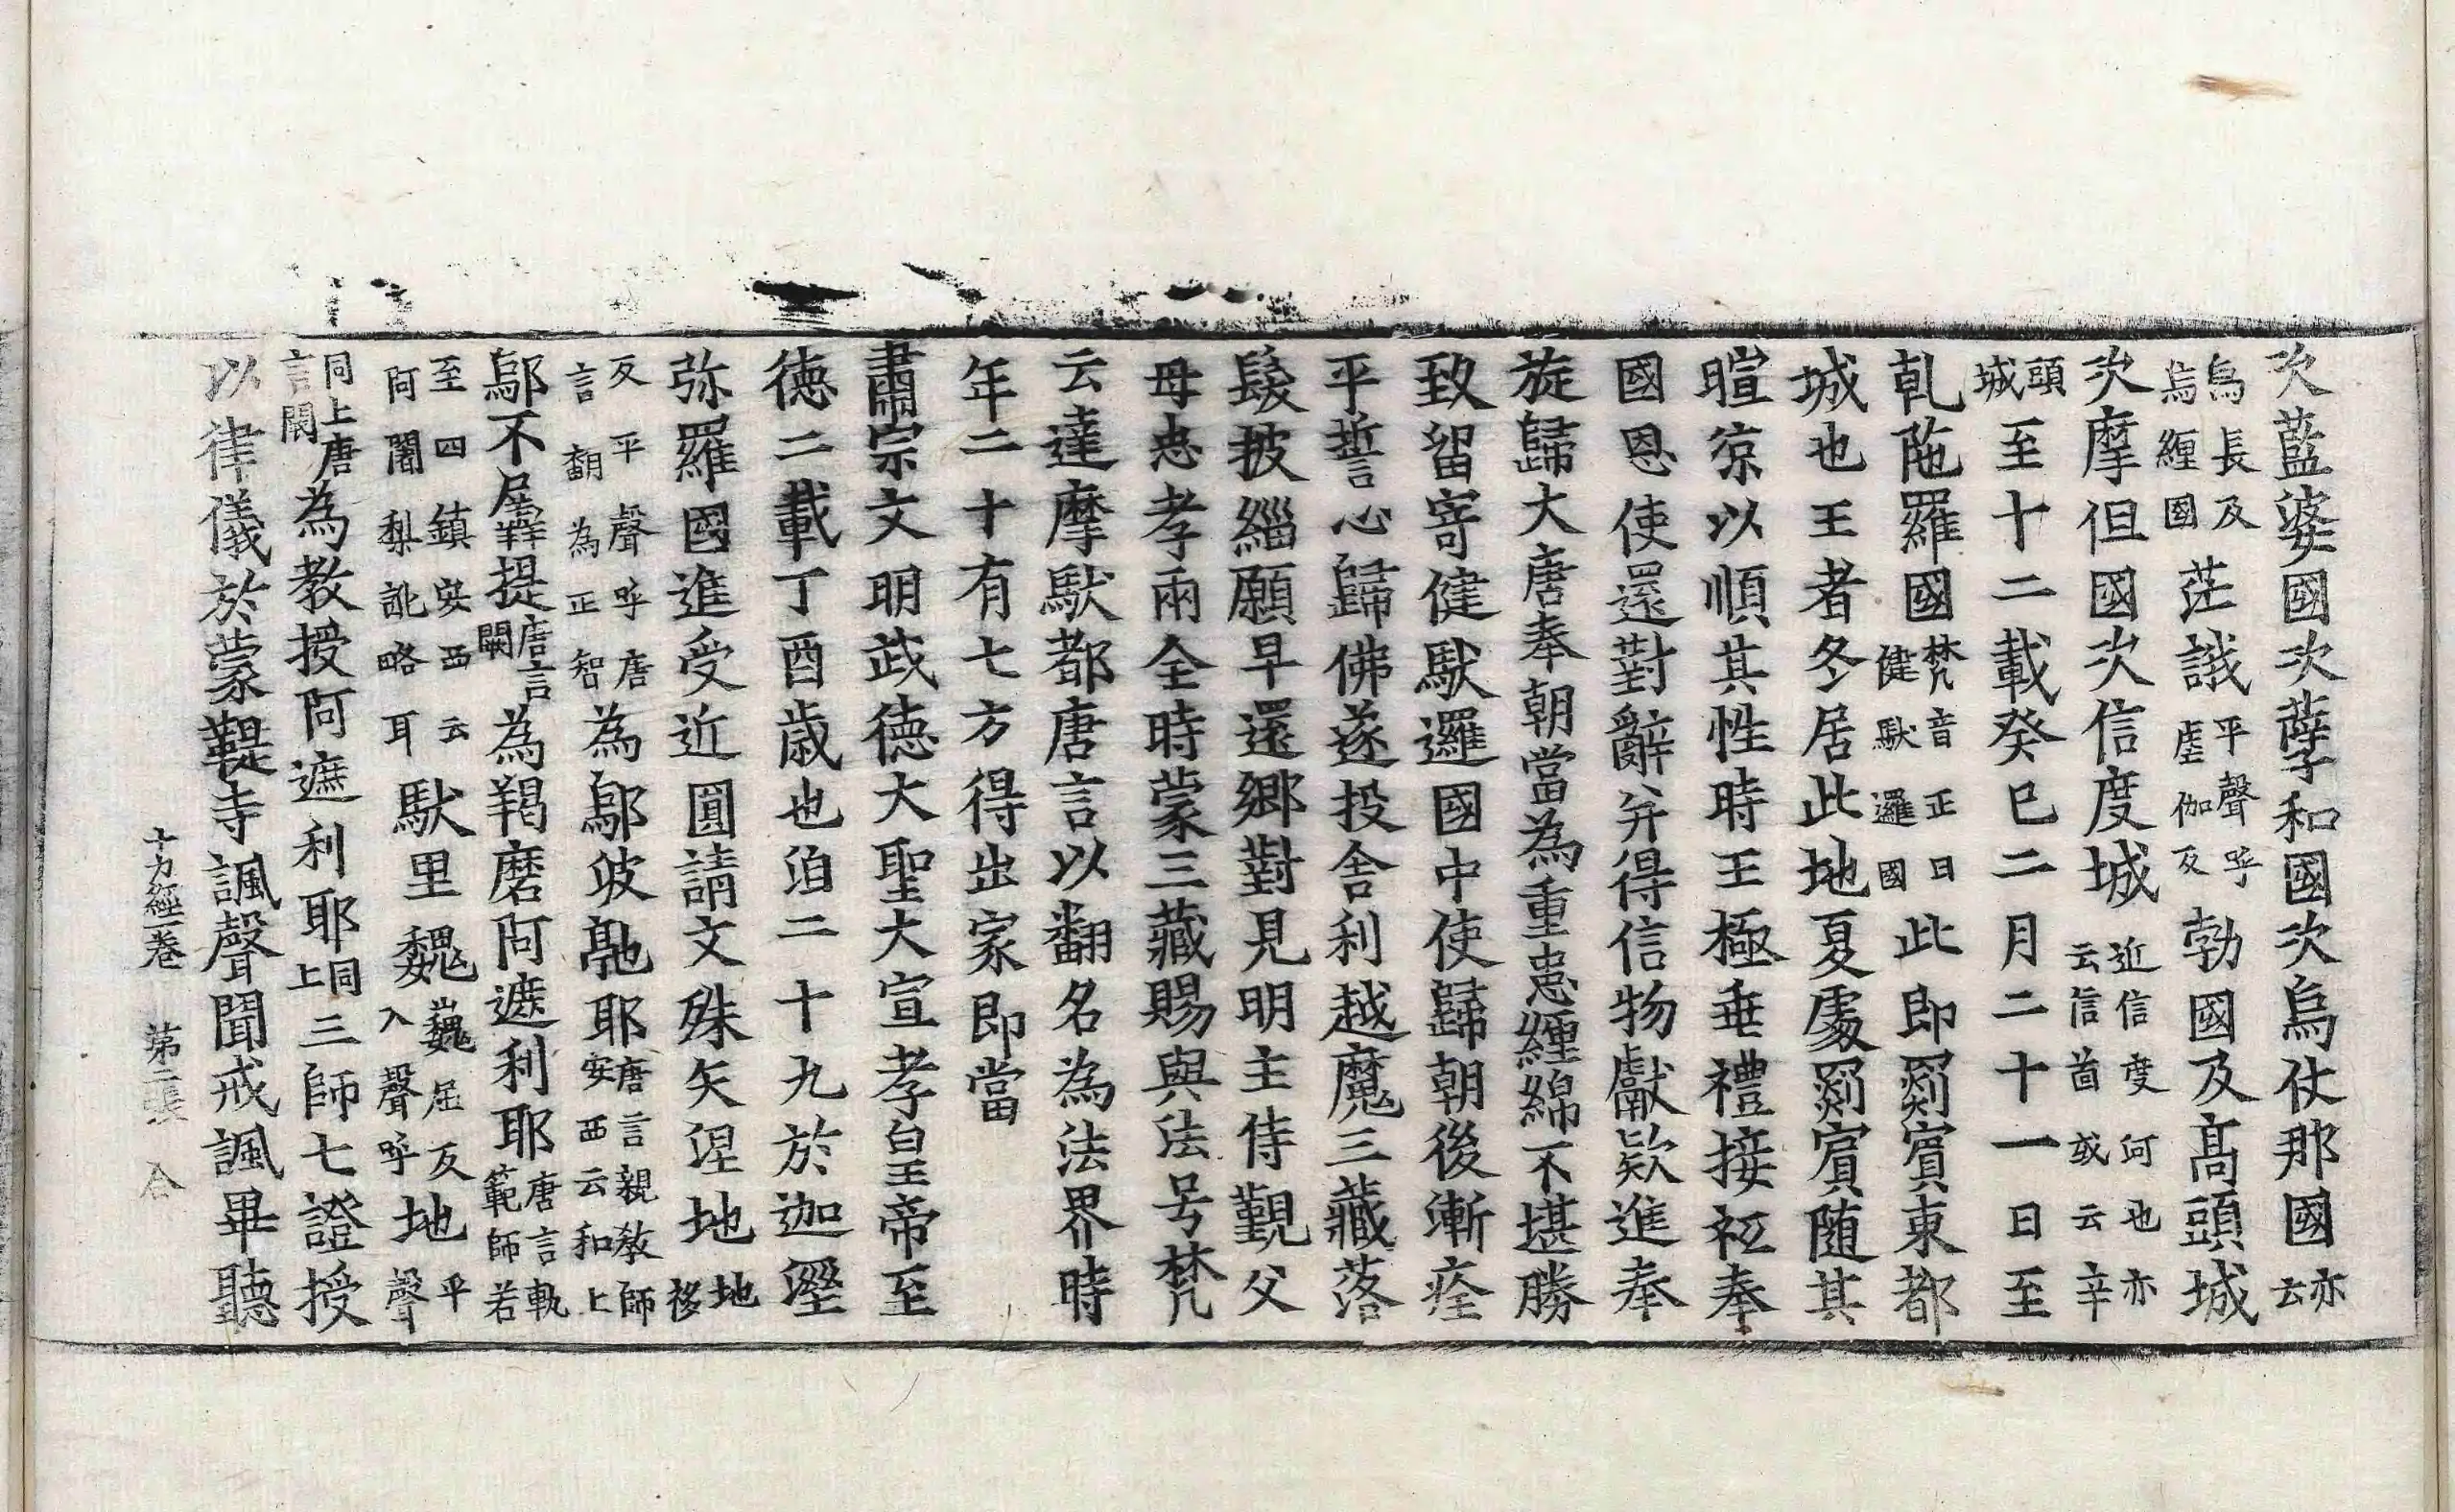 次藍婆國次孽和國次烏仗那國亦云
烏長及烏纏國茫誐平聲呼虐伽反勃國及髙頭城
次摩但國次信度城近信度河也亦云信啚或云辛
頭城至十二載癸巳二月二十一日至
乹陁羅國梵音正曰健馱邏國此即罽賔東都
城也王者冬居此地夏處罽賔随其
暄凉以順其性時王極垂禮接祗奉
國恩使還對辭并得信物獻欵進奉
旋歸大唐奉朝當為重患纏綿不堪勝
致留寄健馱邏國中使歸朝後漸痊
平誓心歸佛遂投舎利越魔三藏落
髮披緇願早還鄉對見明主侍覲父
母忠孝兩全時蒙三藏賜與法号梵
云達摩馱都唐言以翻名為法界時
年二十有七方得出家即當
肅宗文明武德大聖大宣孝皇帝至
徳二載丁酉歳也洎二十九於迦溼
弥羅國進受近圓請文殊矢涅地地移
反平聲呼唐言翻為正智為鄔波𠅤耶唐言親教師安西云和上
鄔不屖提唐言闕為羯磨阿遮利耶唐言軌範師若
至四鎮安西云阿闍梨訛略耳馱里魏巍屈反入聲呼地平聲
同上唐言闕為教授阿遮利耶同上三師七證授
以律儀於蒙鞮寺諷聲聞戒諷畢聽
十力經一卷 第二張 合